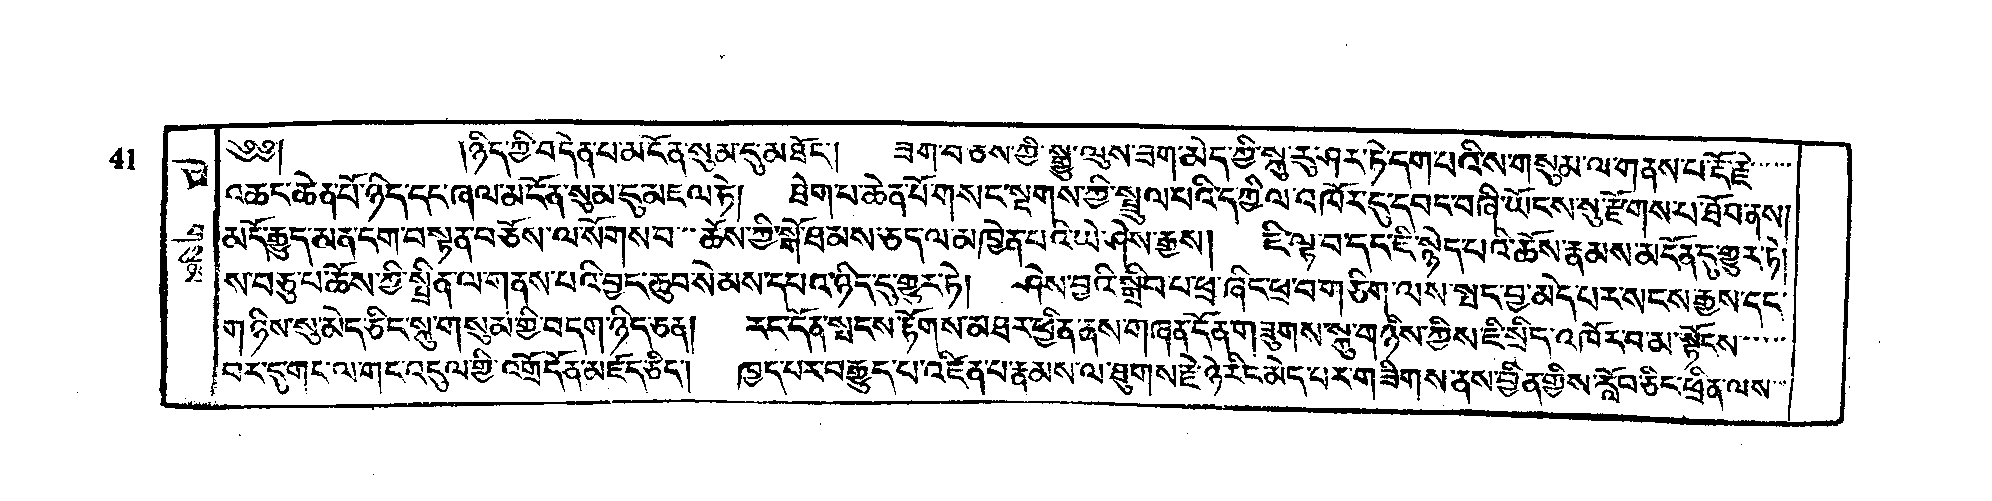 41
༄༅། །ཉིད་ཀྱི་བདེན་པ་མངོན་སུམ་དུ་མཐོང་། ཟག་བཅས་ཀྱི་སྒྱུ་ལུས་ཟག་མེད་ཀྱི་སྐུ་རུ་ཤར་ཏེ་དག་པའི་ས་གསུམ་ལ་གནས་པ་རྡོ་རྗེ
འཆང་ཆེན་པོ་ཉིད་དང་ཞལ་མངོན་སུམ་དུ་མཇལ་ཏེ། ཐེག་པ་ཆེན་པོ་གསང་སྔགས་ཀྱི་སྤྲུལ་པའི་དཀྱིལ་འཁོར་དུ་དབང་བཞི་ཡོངས་སུ་རྫོགས་པ་ཐོབ་ནས།
མདོ་རྒྱུད་མན་ངག་བསྟན་བཅོས་ལ་སོགས་པ་ ཆོས་ཀྱི་སྒོ་ཕམས་ཅད་ལ་མཁྱེན་པའི་ཡེ་ཤེས་རྒྱས། ཇི་ལྟ་བ་དང་ཇི་སྙེད་པའི་ཆོས་རྣམས་མངོན་དུ་གྱུར་ཏེ།
ས་བཅུ་པ་ཆོས་ཀྱི་སྤྲིན་ལ་གནས་པའི་བྱང་ཆུབ་སེམས་དཔའ་ཉིད་དུ་གྱུར་ཏེ། ཤེས་བྱའི་སྒྲིབ་པ་ཕྲ་ཞིང་ཕྲ་བ་གཅིག་ལས་སྤང་བྱ་མེད་པར་སངས་རྒྱས་དང་
གཉིས་སུ་མེད་ཅིང་སྐུ་གསུམ་གྱི་བདག་ཉིད་ཅན། རང་དོན་སྤངས་རྟོགས་མཐར་ཕྱིན་ནས་གཞན་དོན་གཟུགས་སྐུ་གཉིས་ཀྱིས་ཇི་སྲིད་འཁོར་བ་མ་སྟོངས
བར་དུ་གང་ལ་གང་འདུལ་གྱི་འགྲོ་དོན་མཛོད་ཅིང་། ཁྱད་པར་བརྒྱུད་པ་འཛིན་པ་རྣམས་ལ་ཐུགས་རྗེ་ཉེ་རིང་མེད་པར་གཟིགས་ནས་བྱིན་གྱིས་རློབ་ཅིང་ཕྲིན་ལས